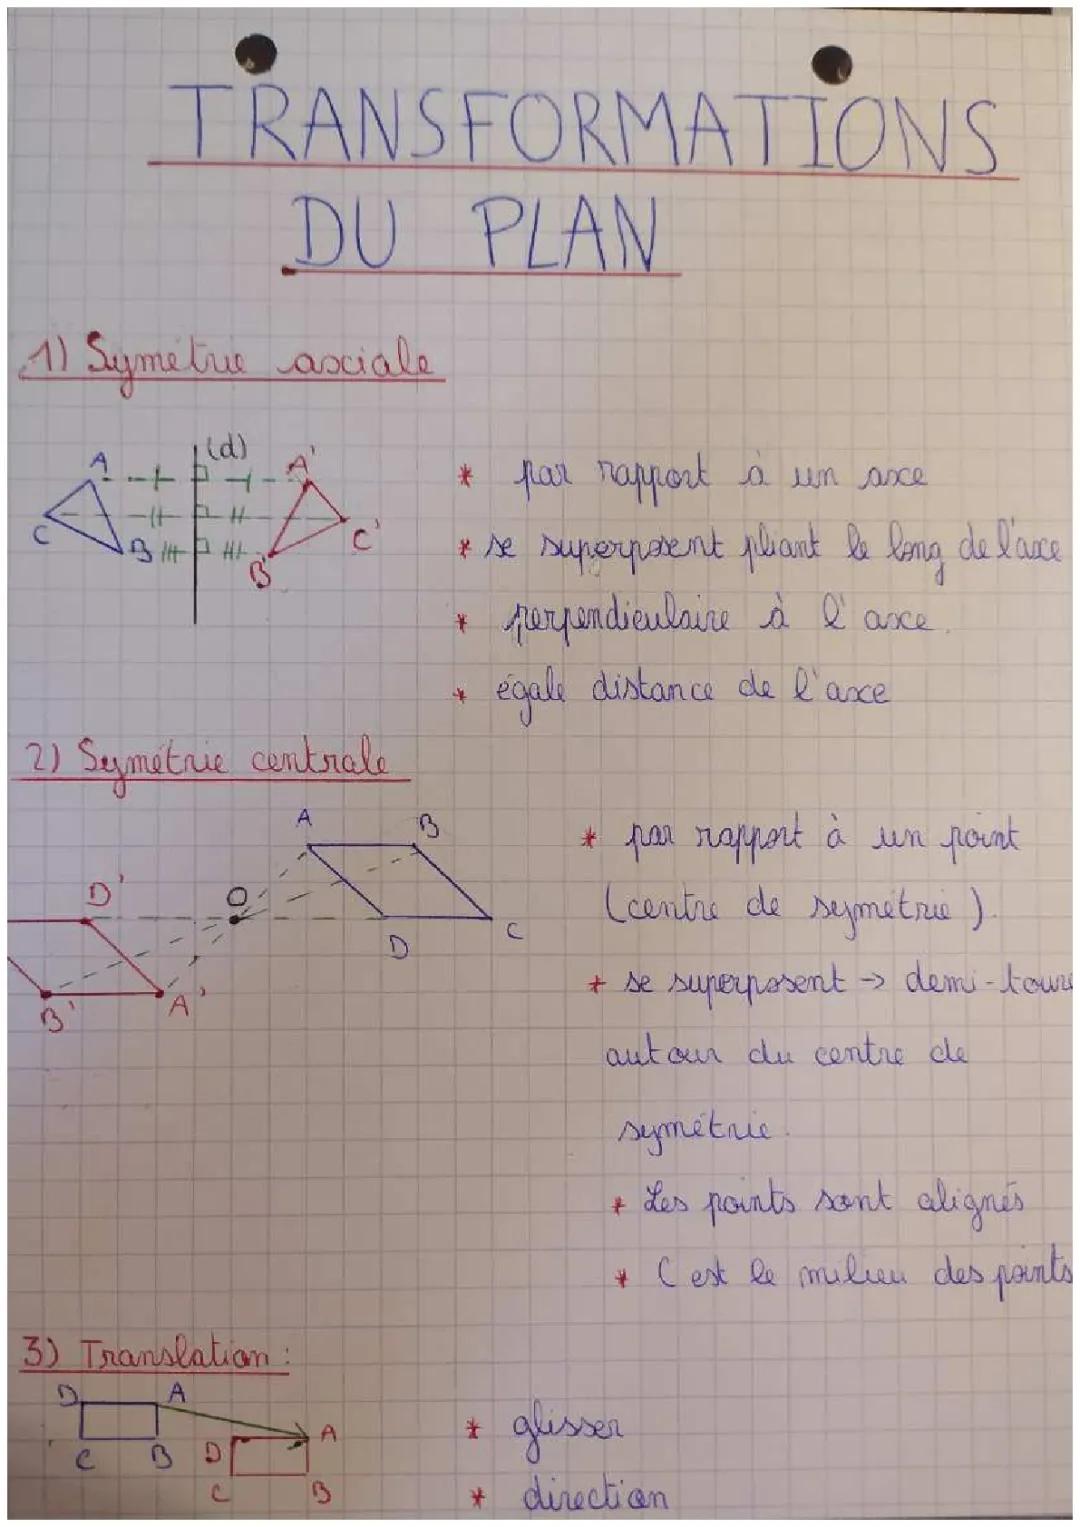 TRANSFORMATIONS
DU PLAN
1) Symétrie axciale
(d)
A
A'
C
B
B'
C'
* par rapport à un axe
* se superposent pliant le long de l'axe
* perpendiculaire à l'axe.
* égale distance de l'axe
2) Symétrie centrale
A
B
D'
O
D
C
B'
A'
* par rapport à un point
(centre de symétrie).
* se superposent → demi-toure
autour du centre de
symétrie.
* Les points sont alignés
* C est le milieu des points
3) Translation :
D
A
C
B
D
A
C
B
* glisser
* direction